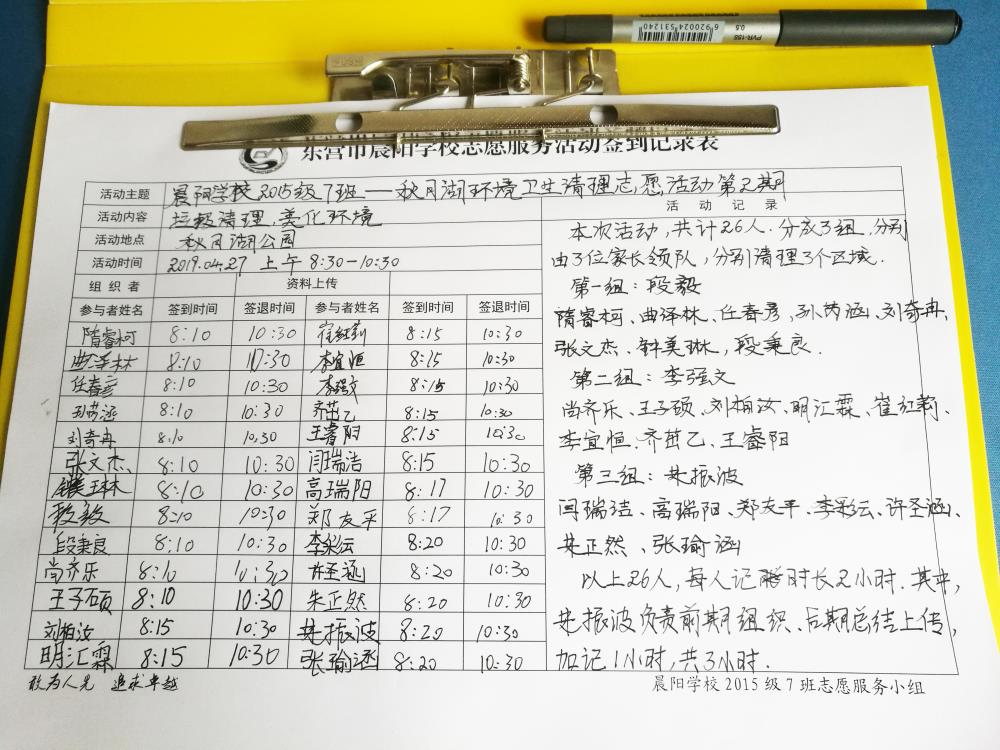 PVR-155
0.5
6920024531240
东营市晨阳学校志愿服务活动签到记录表
活动主题 晨阳学校2015级7班——秋月湖环境卫生清理志愿活动第2期
活动内容 垃圾清理,美化环境
活动地点 秋月湖公园
活动时间 2019.04.27 上午 8:30-10:30
组织者 资料上传
参与者姓名 签到时间 签退时间 参与者姓名 签到时间 签退时间
隋睿柯 8:10 10:30 崔红莉 8:15 10:30
曲泽林 8:10 10:30 李宜恒 8:15 10:30
任春彦 8:10 10:30 李强文 8:15 10:30
孙芮涵 8:10 10:30 齐茁乙 8:15 10:30
刘奇冉 8:10 10:30 王睿阳 8:15 10:30
张文杰 8:10 10:30 闫瑞洁 8:15 10:30
钟美琳 8:10 10:30 高瑞阳 8:17 10:30
段毅 8:10 10:30 郑友平 8:17 10:30
段秉良 8:10 10:30 李彩云 8:20 10:30
尚齐乐 8:10 10:30 许圣涵 8:20 10:30
王子硕 8:10 10:30 朱正然 8:20 10:30
刘柏汝 8:15 10:30 振波 8:20 10:30
明汇霖 8:15 10:30 张瑜涵 8:20 10:30
活动记录
本次活动,共计26人.分成3组,分别
由3位家长领队,分别清理3个区域.
第一组:段毅
隋睿柯、曲泽林、任春彦、孙芮涵、刘奇冉、
张文杰、钟美琳、段秉良.
第二组:李强文
尚齐乐、王子硕、刘柏汝、明汇霖、崔红莉、
李宜恒、齐茁乙、王睿阳
第三组:振波
闫瑞洁、高瑞阳、郑友平、李彩云、许圣涵、
正然、张瑜涵
以上26人,每人记时长2小时.其中,
振波负责前期组织、后期总结上传,
加记1小时,共3小时.
敢为人先 追求卓越
晨阳学校2015级7班志愿服务小组